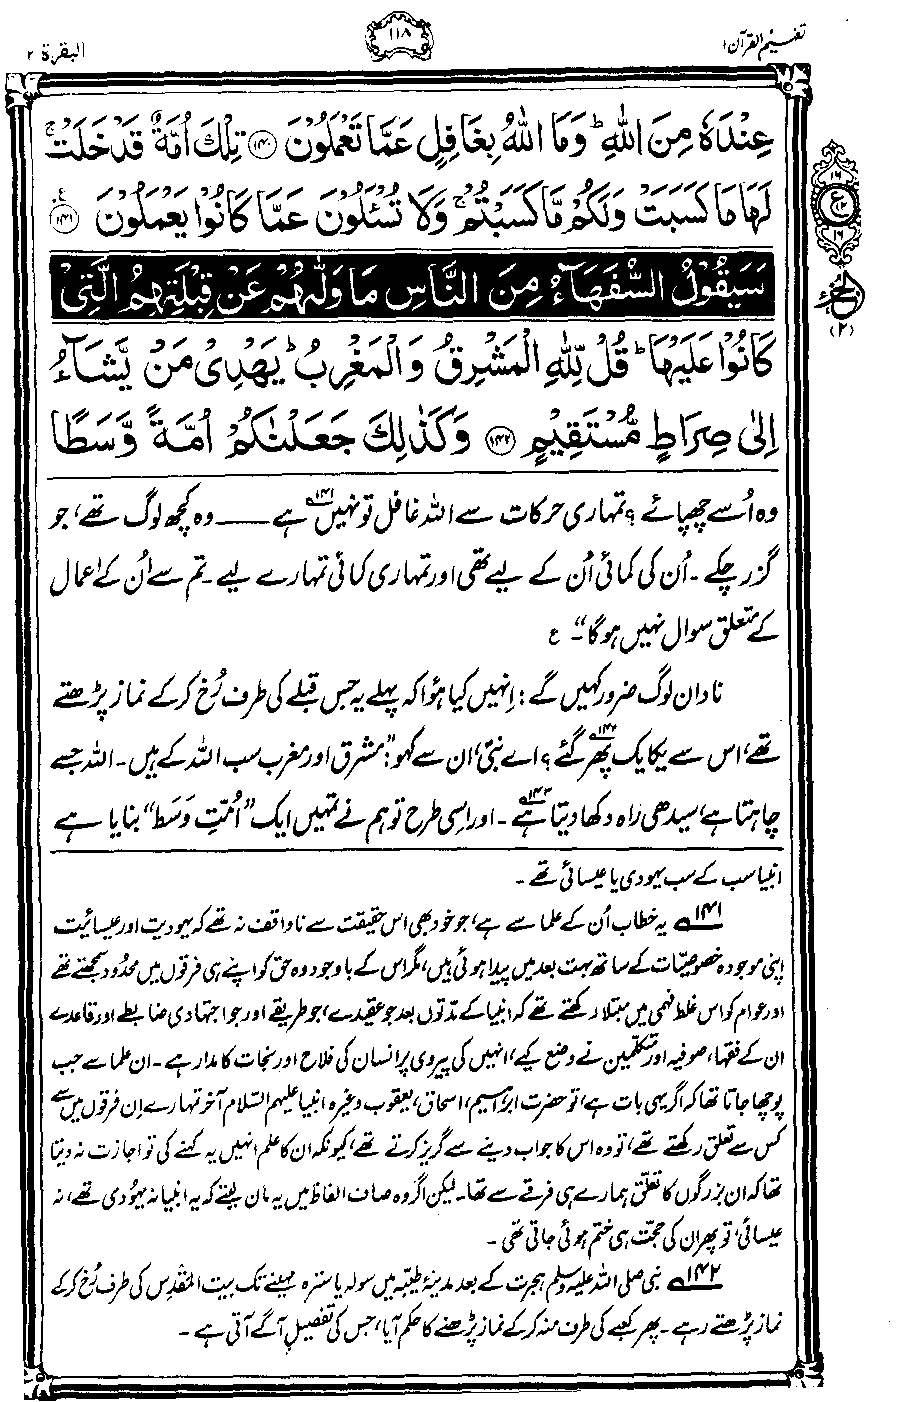 تفہیم القرآن ۱
۱۱۸
البقرة ۲
عِنْدَهٗ مِنَ اللّٰهِ ؕ وَمَا اللّٰهُ بِغَافِلٍ عَمَّا تَعْمَلُوْنَ ﴿۱۴۰﴾ تِلْكَ اُمَّةٌ قَدْ خَلَتْ ۚ
لَهَا مَا كَسَبَتْ وَلَكُمْ مَّا كَسَبْتُمْ ۚ وَلَا تُسْـَٔلُوْنَ عَمَّا كَانُوْا يَعْمَلُوْنَ ﴿۱۴۱﴾ ع
سَيَقُوْلُ السُّفَهَآءُ مِنَ النَّاسِ مَا وَلّٰىهُمْ عَنْ قِبْلَتِهِمُ الَّتِيْ
كَانُوْا عَلَيْهَا ؕ قُلْ لِّلّٰهِ الْمَشْرِقُ وَالْمَغْرِبُ ؕ يَهْدِيْ مَنْ يَّشَآءُ
اِلٰى صِرَاطٍ مُّسْتَقِيْمٍ ﴿۱۴۲﴾ وَكَذٰلِكَ جَعَلْنٰكُمْ اُمَّةً وَّسَطًا
۱۶
ع
۱۶
الجزء
(۲)
وہ اُسے چھپائے ؟ تمہاری حرکات سے اللہ غافل تو نہیں ہے۱۴۱ ــــ وہ کچھ لوگ تھے، جو
گزر چکے۔ اُن کی کمائی اُن کے لیے تھی اور تمہاری کمائی تمہارے لیے۔ تم سے اُن کے اعمال
کے متعلق سوال نہیں ہوگا“۔ ع
نادان لوگ ضرور کہیں گے : اِنہیں کیا ہُوا کہ پہلے یہ جس قبلے کی طرف رُخ کر کے نماز پڑھتے
تھے، اس سے یکایک پھر گئے۱۴۲ ؟ اے نبیؐ، ان سے کہو: ”مشرق اور مغرب سب اللہ کے ہیں۔ اللہ جسے
چاہتا ہے، سیدھی راہ دکھا دیتا ہے۱۴۳۔ اور اِسی طرح تو ہم نے تمہیں ایک ”اُمّتِ وَسَط“ بنایا ہے
انبیا سب کے سب یہودی یا عیسائی تھے۔
۱۴۱ یہ خطاب اُن کے علما سے ہے، جو خود بھی اس حقیقت سے ناواقف نہ تھے کہ یہودیت اور عیسائیت
اپنی موجودہ خصوصیّات کے ساتھ بہت بعد میں پیدا ہوئی ہیں، مگر اس کے باوجود وہ حق کو اپنے ہی فرقوں میں محدُود سمجھتے تھے
اور عوام کو اس غلط فہمی میں مبتلا رکھتے تھے کہ انبیا کے مدّتوں بعد جو عقیدے، جو طریقے اور جو اجتہادی ضابطے اور قاعدے
ان کے فقہا، صوفیہ اور متکلّمین نے وضع کیے، انہیں کی پیروی پر انسان کی فلاح اور نجات کا مدار ہے۔ ان علما سے جب
پُوچھا جاتا تھا کہ اگر یہی بات ہے، تو حضرت ابراہیم، اسحاق، یعقوب وغیرہ انبیا علیہم السّلام آخر تمہارے اِن فرقوں میں سے
کس سے تعلق رکھتے تھے، تو وہ اس کا جواب دینے سے گریز کرتے تھے، کیونکہ ان کا علم انہیں یہ کہنے کی تو اجازت نہ دیتا
تھا کہ ان بزرگوں کا تعلّق ہمارے ہی فرقے سے تھا۔ لیکن اگر وہ صاف الفاظ میں یہ مان لیتے کہ یہ انبیا نہ یہُودی تھے، نہ
عیسائی، تو پھر ان کی حجّت ہی ختم ہوئی جاتی تھی۔
۱۴۲ نبی صلی اللہ علیہ وسلم ہجرت کے بعد مدینۂ طیّبہ میں سولہ یا سترہ مہینے تک بیت المَقْدِس کی طرف رُخ کر کے
نماز پڑھتے رہے۔ پھر کعبے کی طرف منہ کر کے نماز پڑھنے کا حکم آیا، جس کی تفصیل آگے آتی ہے۔